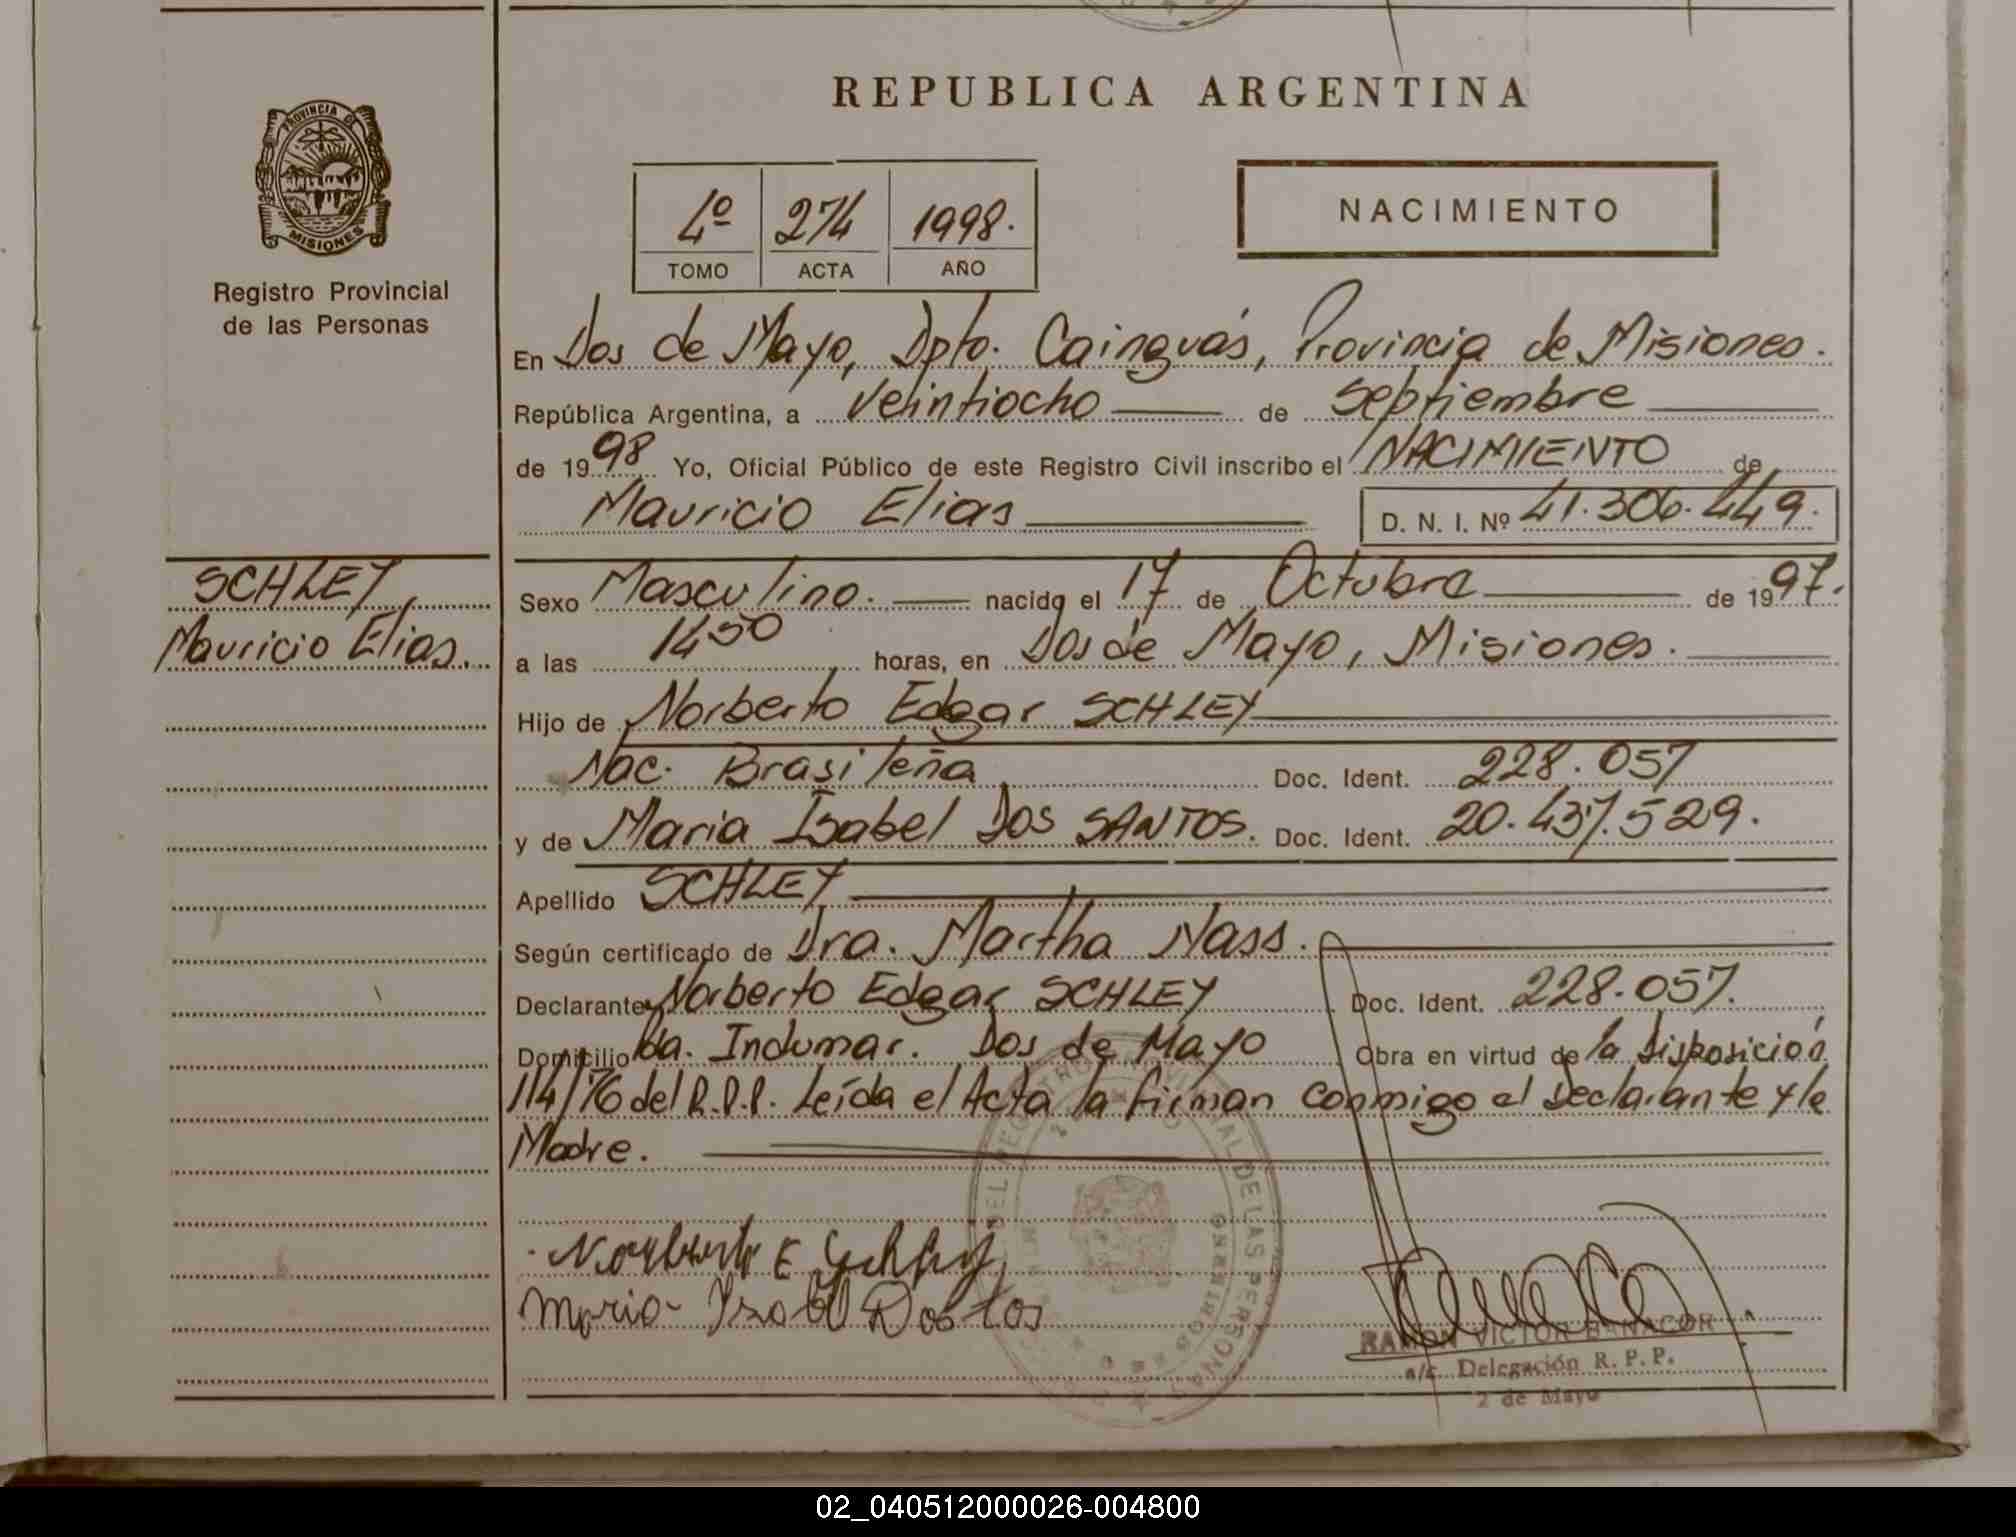 REPUBLICA ARGENTINA
PROVINCIA DE
MISIONES
Registro Provincial
de las Personas
4º 274 1998.
TOMO ACTA AÑO
NACIMIENTO
En Dos de Mayo, Dpto. Cainguás, Provincia de Misiones.
República Argentina, a veintiocho de septiembre
de 1998 Yo, Oficial Público de este Registro Civil inscribo el NACIMIENTO de
Mauricio Elias D. N. I. Nº 41.306.449.
SCHLEY
Mauricio Elias.
Sexo Masculino. nacido el 17 de Octubre de 1997.
a las 1450 horas, en Dos de Mayo, Misiones.
Hijo de Norberto Edgar SCHLEY
Nac. Brasileña Doc. Ident. 228.057
y de Maria Isabel Dos SANTOS. Doc. Ident. 20.437.529.
Apellido SCHLEY
Según certificado de Dra. Martha Nass.
Declarante Norberto Edgar SCHLEY Doc. Ident. 228.057.
Domicilio Bda. Indumar. Dos de Mayo Obra en virtud de la Disposición
114/76 del R.P.P. Leída el Acta la firman conmigo el Declarante y la
Madre.
Norberto E Schley
Maria Isabel
RAMON VICTOR BANACOR
a/c. Delegación R. P. P.
2 de Mayo
02_040512000026-004800